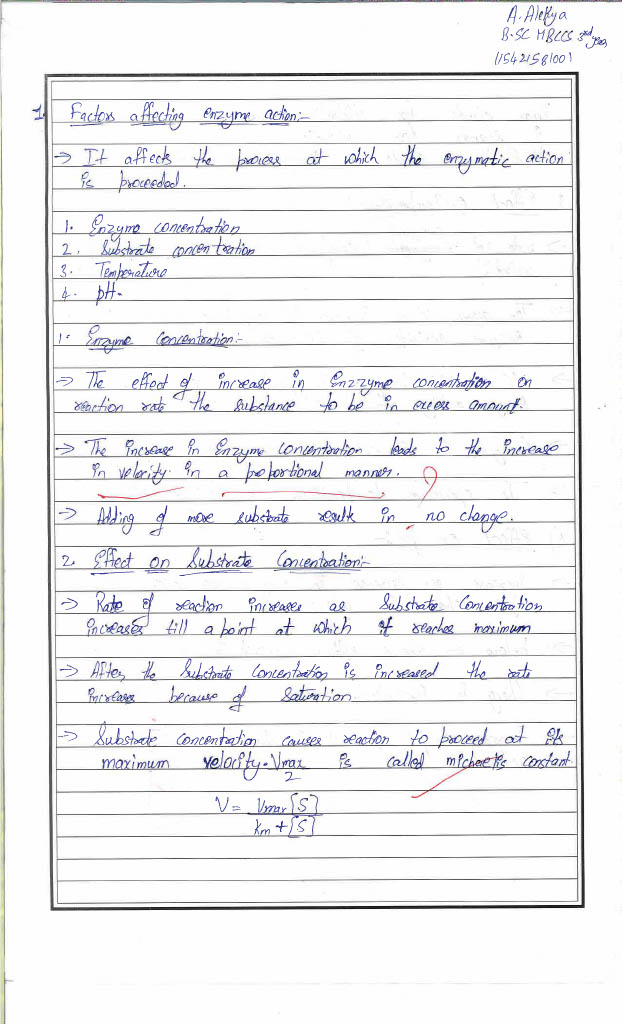 A. Alekya
B.SC MBCCS 3rd year
115421581001
1. Factors affecting enzyme action:-
→ It affects the process at which the enzymatic action
is proceeded.
1. Enzyme concentration
2. Substrate concentration
3. Temperature
4. pH.
1. Enzyme Concentration:-
→ The effect of increase in Enzzyme concentration on
reaction rate the substance to be in excess amount.
→ The Increase in Enzyme concentration leads to the increase
in velocity in a propotional manner.
→ Adding of more substrate results in no change.
2. Effect on Substrate Concentration:-
→ Rate of reaction increases as Substrate Concentration
increases till a point at which it reaches maximum
→ After the Substrate Concentration is increased the rate
increases because of Saturation.
→ Substrate concentration causes reaction to proceed at its
maximum velocity. Vmax/2 is called constant.
V = Vmax[S]
Km + [S]